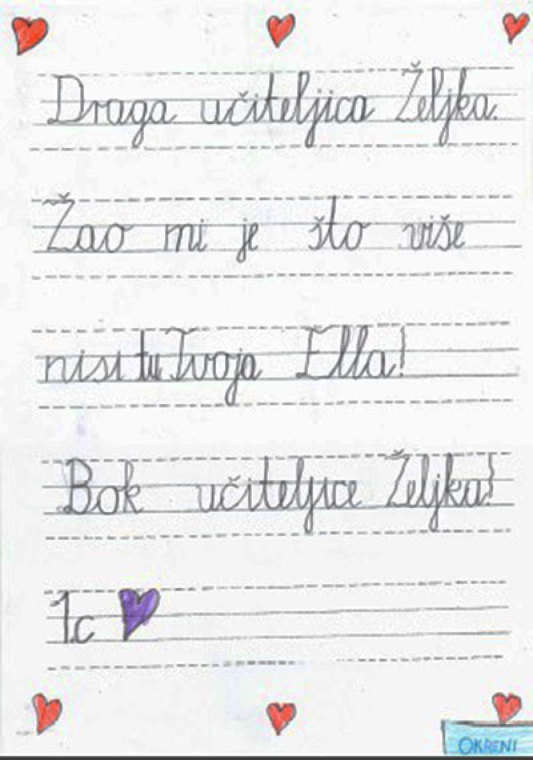 Draga učiteljica Željka.
Žao mi je što više
nisi tu Tvoja Ella!
Bok učiteljice Željka!
1.c
OKRENI